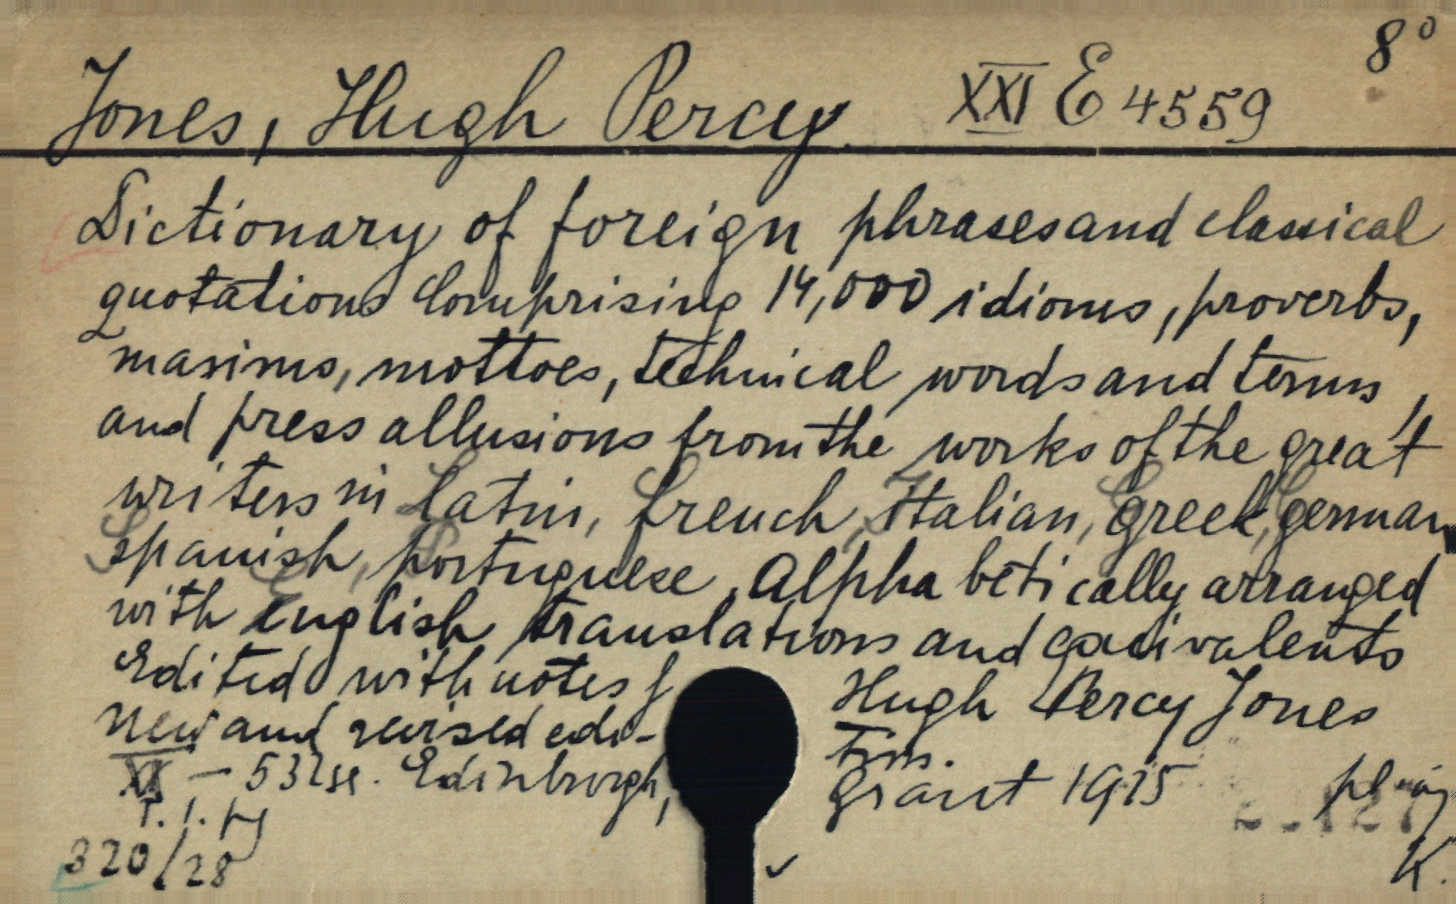 8°
Jones, Hugh Percy. XXI E 4559
Dictionary of foreign phrases and classical
quotations Comprising 14,000 idioms, proverbs,
maxims, mottoes, technical words and terms,
and press allusions from the works of the great
writers in Latin, French, Italian, Greek, German
Spanish, Portuguese. Alphabetically arranged
with English translations and equivalents
Edited with notes Hugh Percy Jones
New and revised edi-
XI - 532 Edinburgh, Grant 1915
320/28
K.